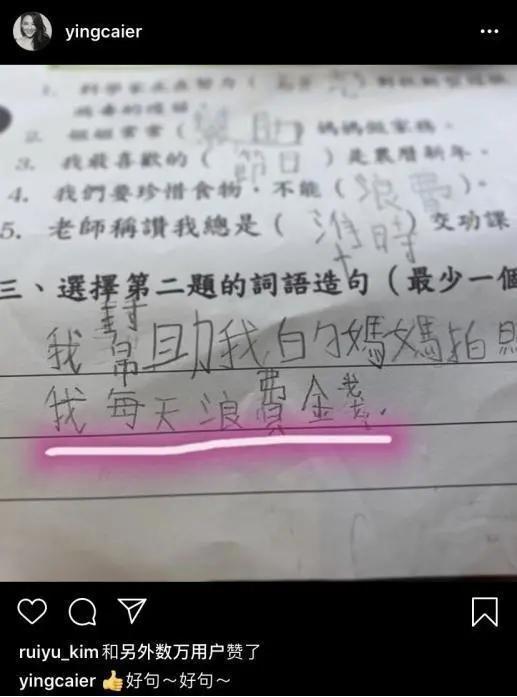 yingcaier
2. 姐姐常常（幫助）媽媽做家務。
3. 我最喜歡的（節日）是農曆新年。
4. 我們要珍惜食物，不能（浪費）。
5. 老師稱讚我總是（準時）交功課
三、選擇第二題的詞語造句（最少一個
我幫助我的媽媽拍照
我每天浪費金錢。
ruiyu_kim和另外数万用户赞了
yingcaier 👍好句～好句～